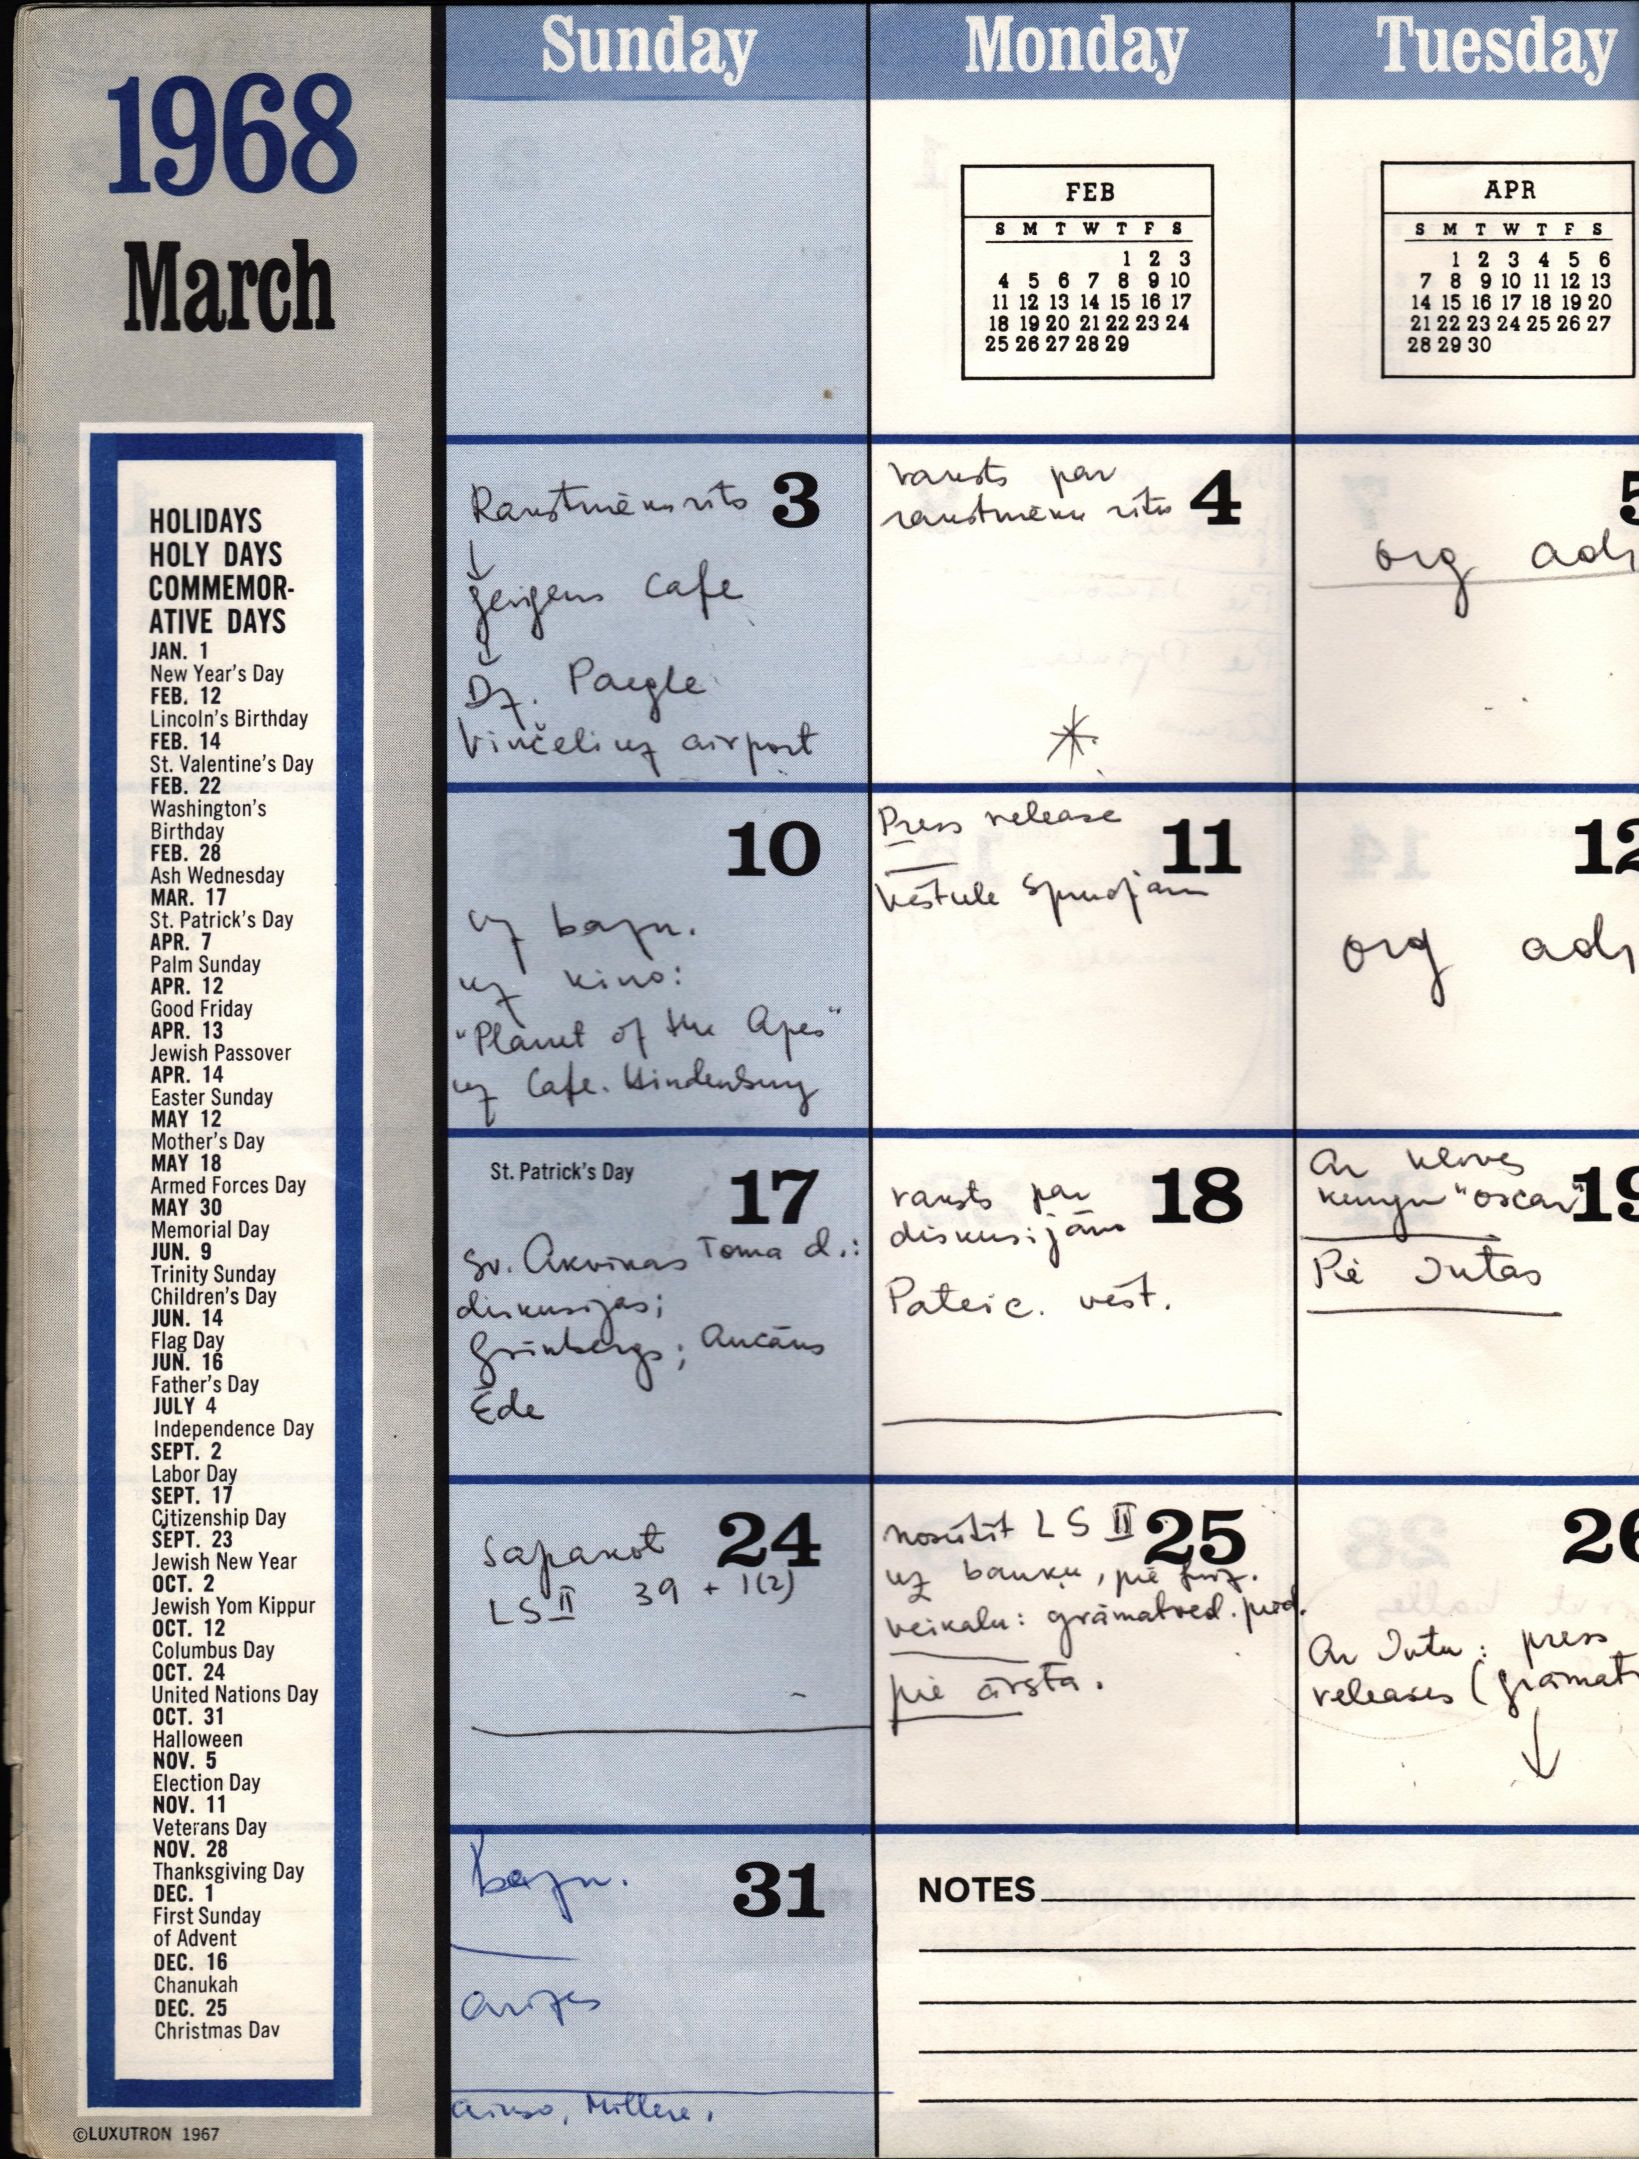 1968
March
HOLIDAYS
HOLY DAYS
COMMEMOR-
ATIVE DAYS
JAN. 1
New Year's Day
FEB. 12
Lincoln's Birthday
FEB. 14
St. Valentine's Day
FEB. 22
Washington's
Birthday
FEB. 28
Ash Wednesday
MAR. 17
St. Patrick's Day
APR. 7
Palm Sunday
APR. 12
Good Friday
APR. 13
Jewish Passover
APR. 14
Easter Sunday
MAY 12
Mother's Day
MAY 18
Armed Forces Day
MAY 30
Memorial Day
JUN. 9
Trinity Sunday
Children's Day
JUN. 14
Flag Day
JUN. 16
Father's Day
JULY 4
Independence Day
SEPT. 2
Labor Day
SEPT. 17
Citizenship Day
SEPT. 23
Jewish New Year
OCT. 2
Jewish Yom Kippur
OCT. 12
Columbus Day
OCT. 24
United Nations Day
OCT. 31
Halloween
NOV. 5
Election Day
NOV. 11
Veterans Day
NOV. 28
Thanksgiving Day
DEC. 1
First Sunday
of Advent
DEC. 16
Chanukah
DEC. 25
Christmas Day
©LUXUTRON 1967
Sunday Monday Tuesday
FEB
S M T W T F S
1 2 3
4 5 6 7 8 9 10
11 12 13 14 15 16 17
18 19 20 21 22 23 24
25 26 27 28 29
APR
S M T W T F S
1 2 3 4 5 6
7 8 9 10 11 12 13
14 15 16 17 18 19 20
21 22 23 24 25 26 27
28 29 30
3
Rakstnieku rīts
↓
Cafe
↓
Dz. Paegle
Vinčeli uz airport
4
raksts par
rakstnieku rītu
*
5
org adr
10
uz bazn.
uz kino:
"Planet of the Apes"
uz Cafe. Hindenburg
11
Press release
Vēstule Spudjam
12
org adr
St. Patrick's Day
17
Sv. Akvinas Toma d.:
diskusijas;
Grīnbergs; Ancāns
Ede
18
raksts par
diskusijām
Pateic. vēst.
19
Ar
"Oscar"
Pie Intas
24
Sapakot
LS II 39 + 1(2)
25
nosūtīt LS II
uz banku, pie
veikalu: grāmatved. pied.
pie ārsta.
26
Ar Intu: press
releases (grāmat
↓
31
bazn.
Müllere,
NOTES